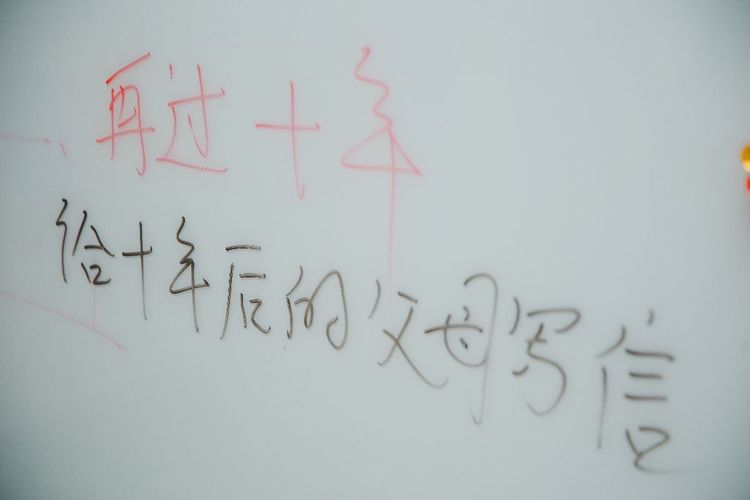 一、再过十年
给十年后的父母写信